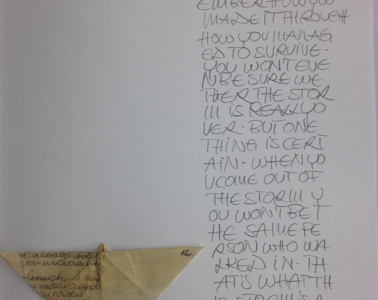 EMBER HOW YOU
MADE IT THROUGH
HOW YOU MANAG
ED TO SURVIVE.
YOU WON'T EVE
N BE SURE WE
THER THE STOR
M IS REALLY O
VER. BUT ONE
THING IS CERT
AIN. WHEN YO
U COME OUT OF
THE STORM Y
OU WON'T BE T
HE SAME PE
RSON WHO WA
LKED IN. TH
AT IS WHAT TH